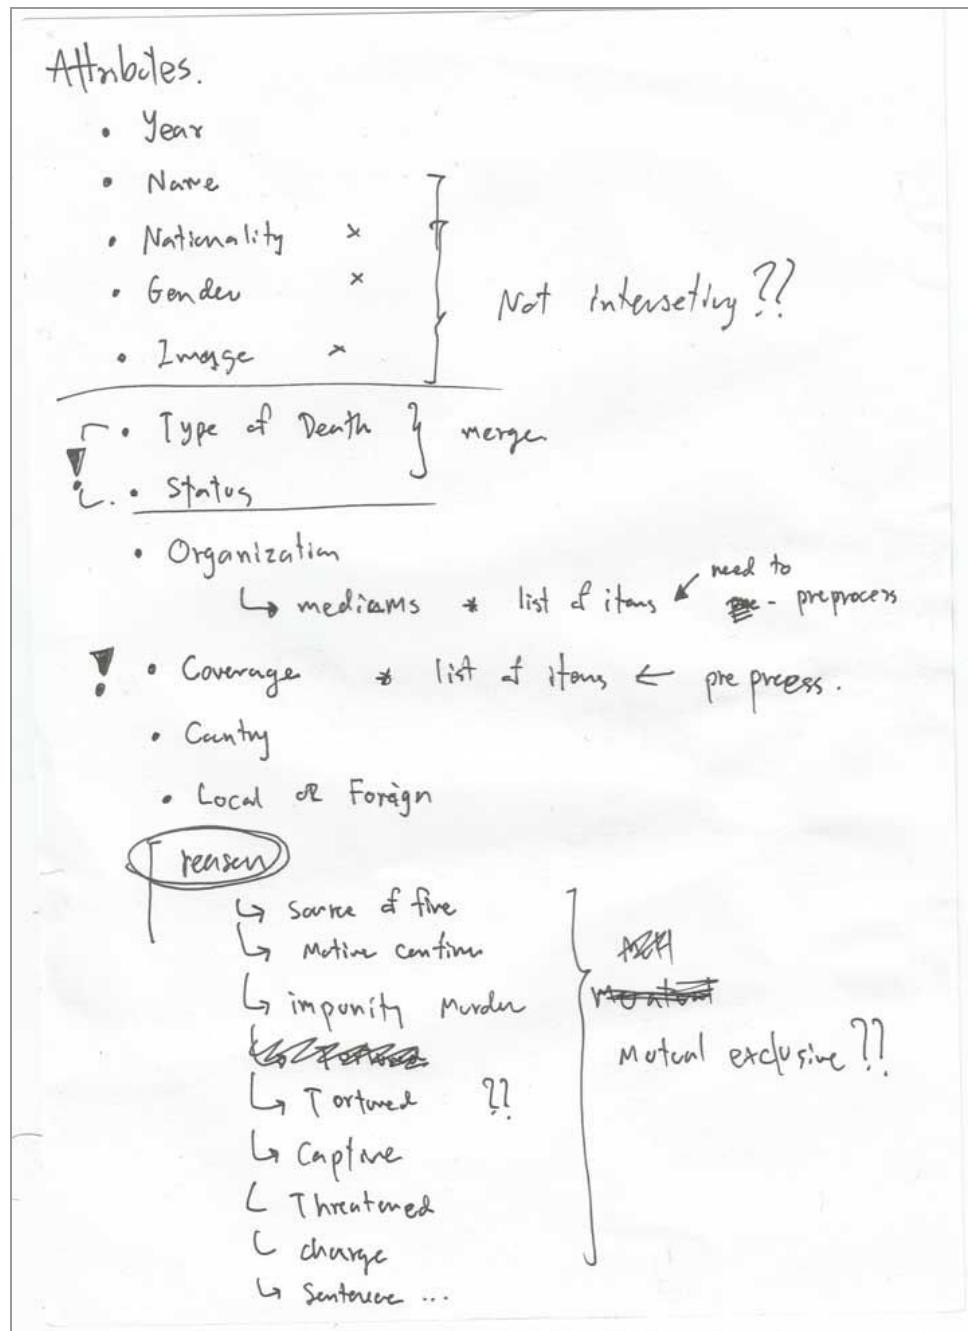 Attributes.
• Year
• Name
• Nationality ×
• Gender ×
• Image ×
Not interseting ??
• Type of Death } merge
• Status
• Organization
↳ mediums * list of items ↙ need to
- preprocess
• Coverage * list of items ← preprocess.
• Country
• Local or Foreign
reason
↳ Source of fire
↳ Motive confirm
↳ impunity Murder
↳ Tortured ??
↳ Captive
Threatened
charge
↳ Sentence ...
Mutual exclusive ??